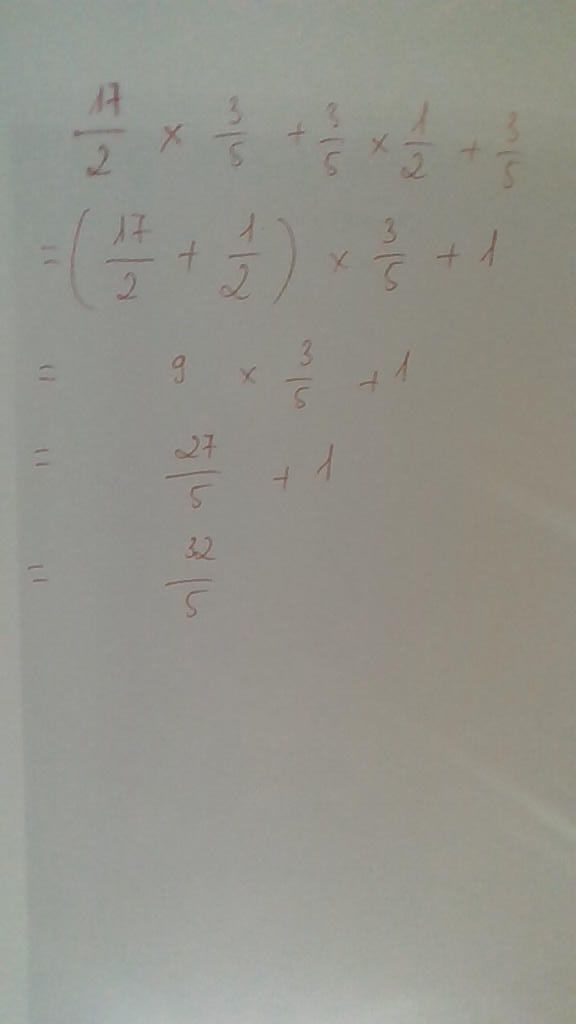 17/2 × 3/5 + 3/5 × 1/2 + 3/5
= (17/2 + 1/2) × 3/5 + 1
= 9 × 3/5 + 1
= 27/5 + 1
= 32/5